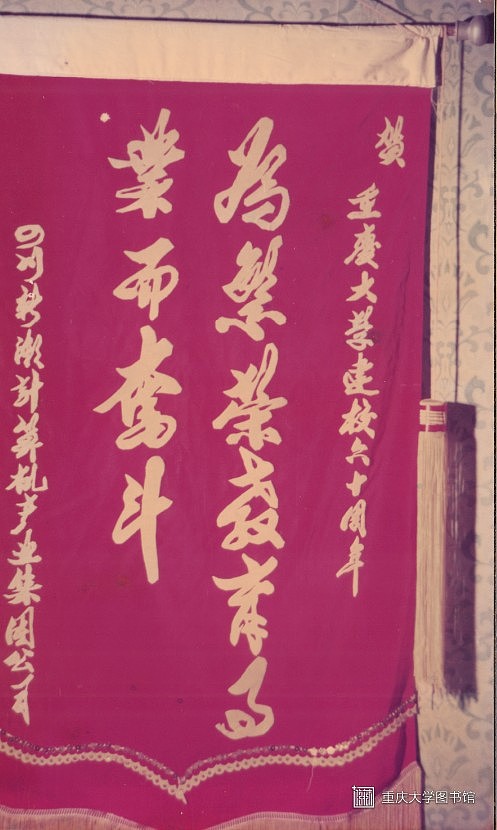 贺
重慶大学建校六十周年
為繁榮教育事
業而奮斗
四川新潮计算机产业集团公司
重庆大学图书馆